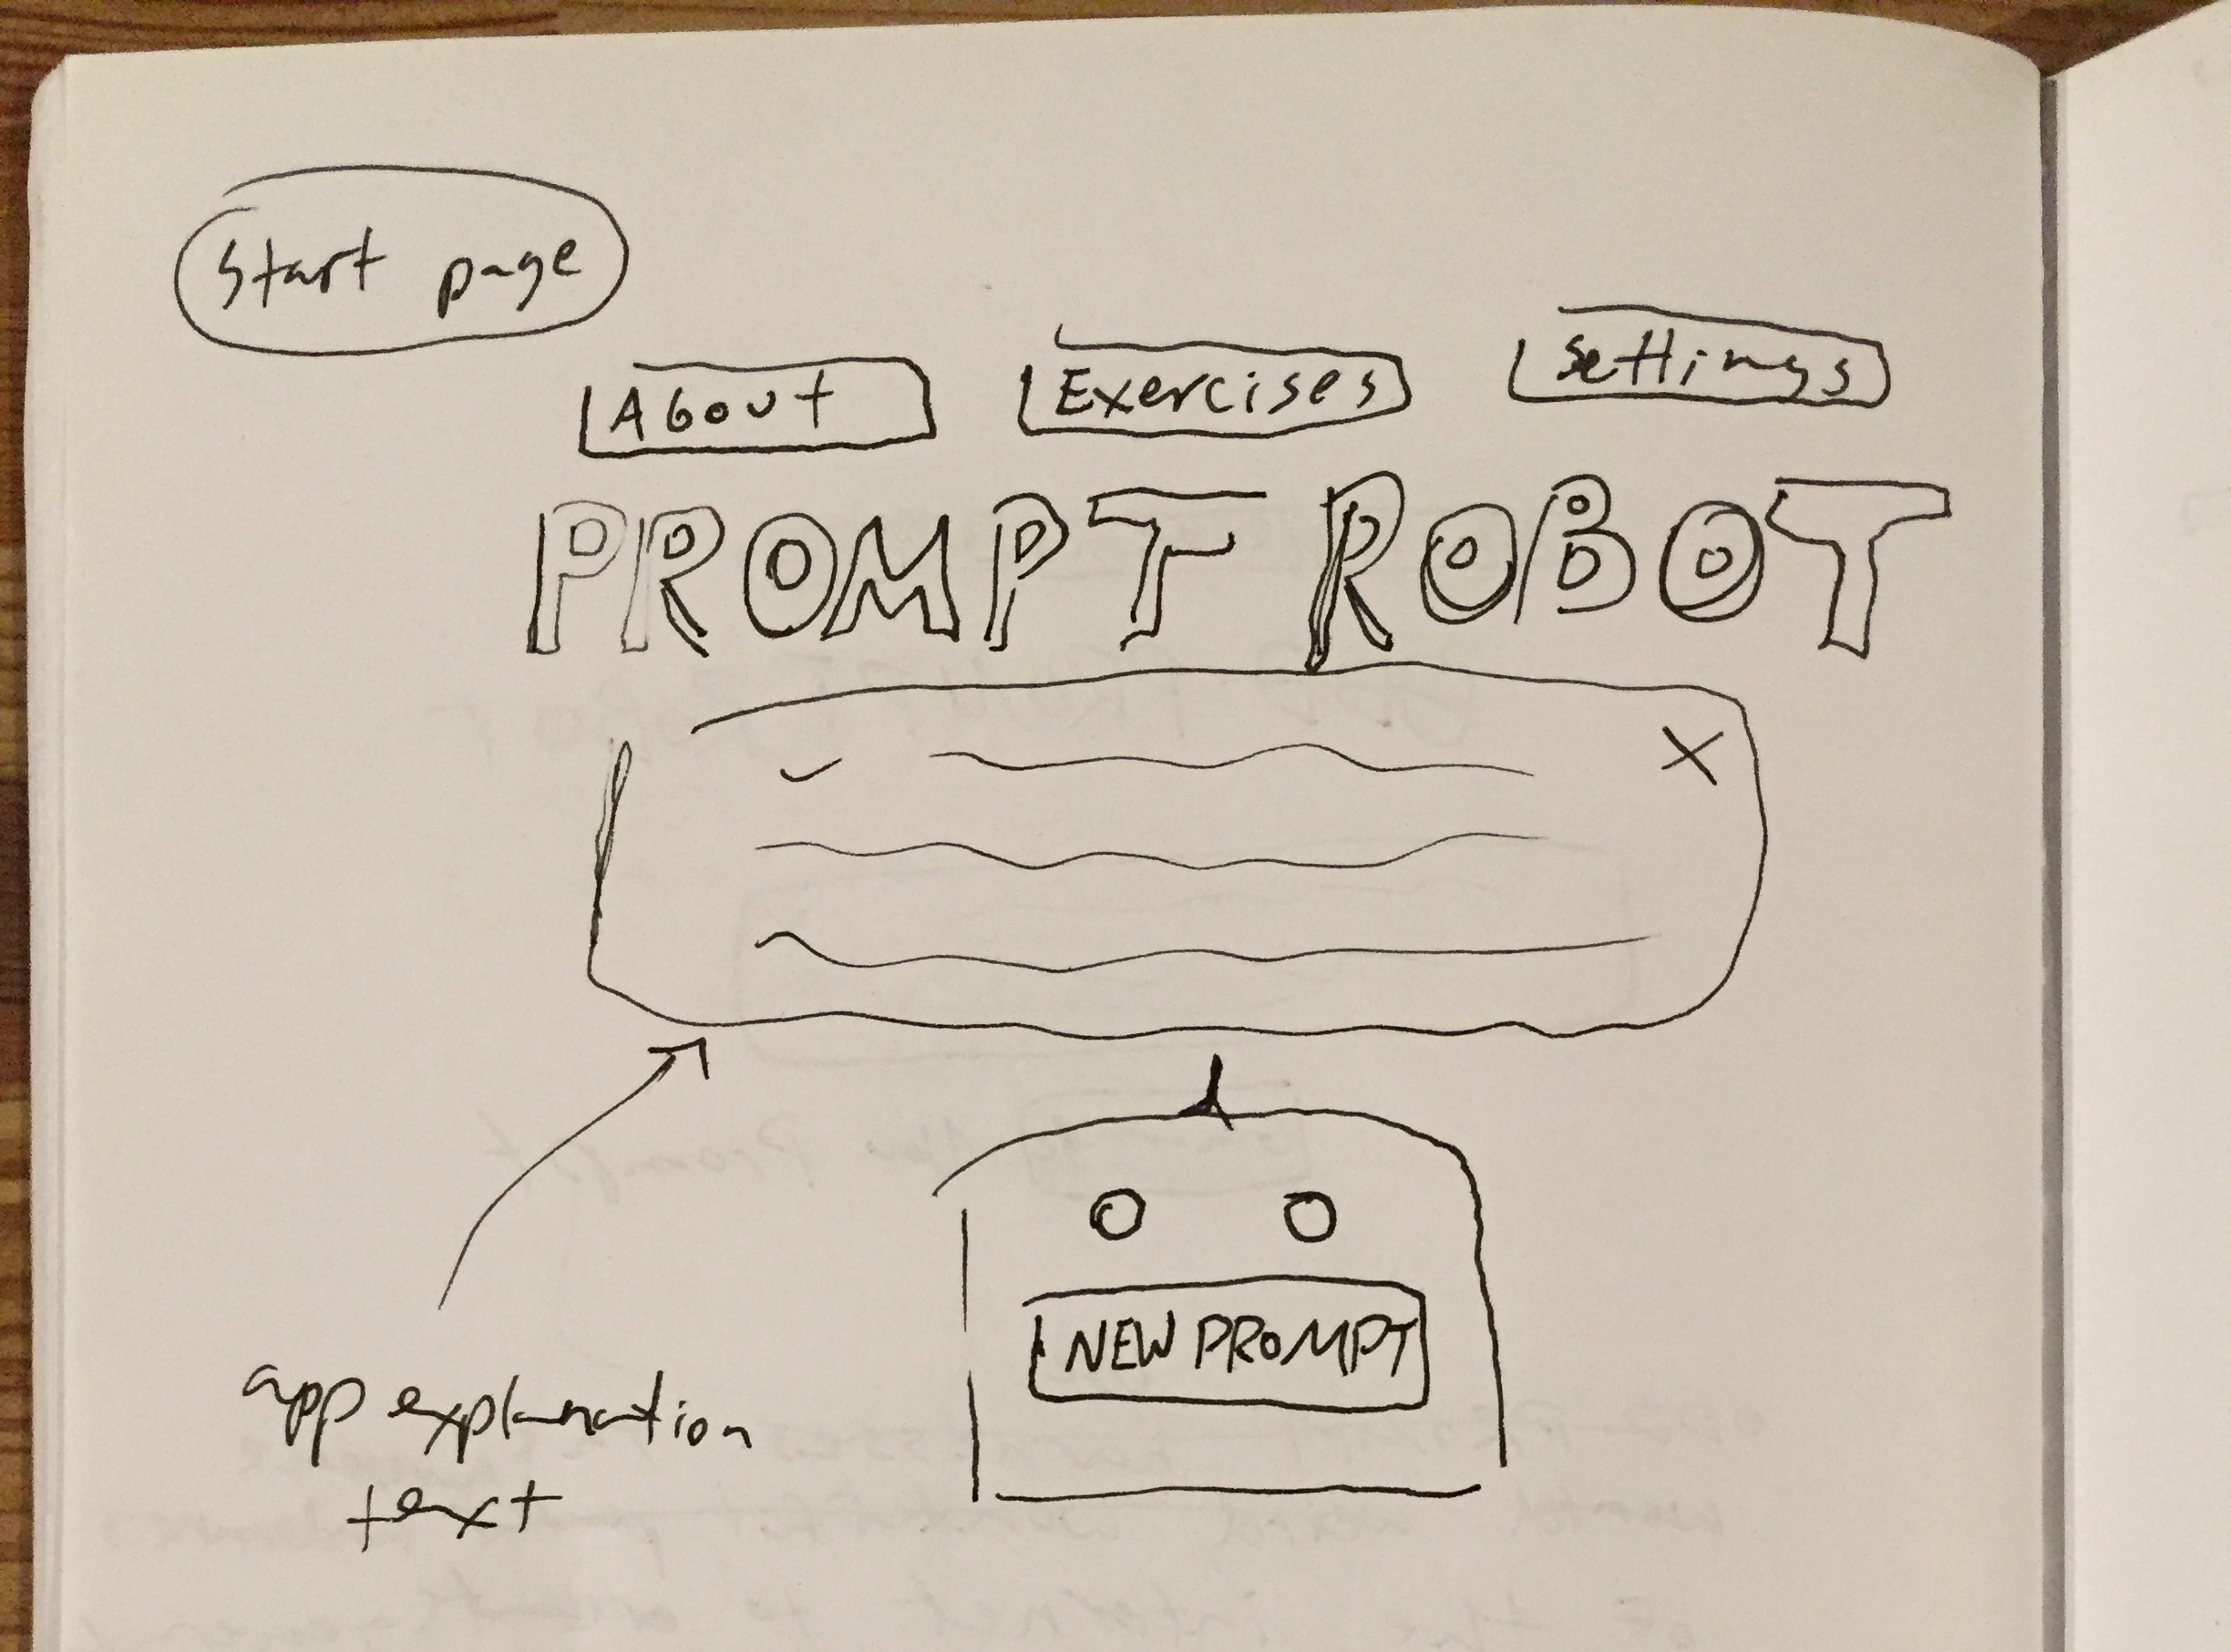 Start page
About
Exercises
Settings
PROMPT ROBOT
X
NEW PROMPT
app explanation
text